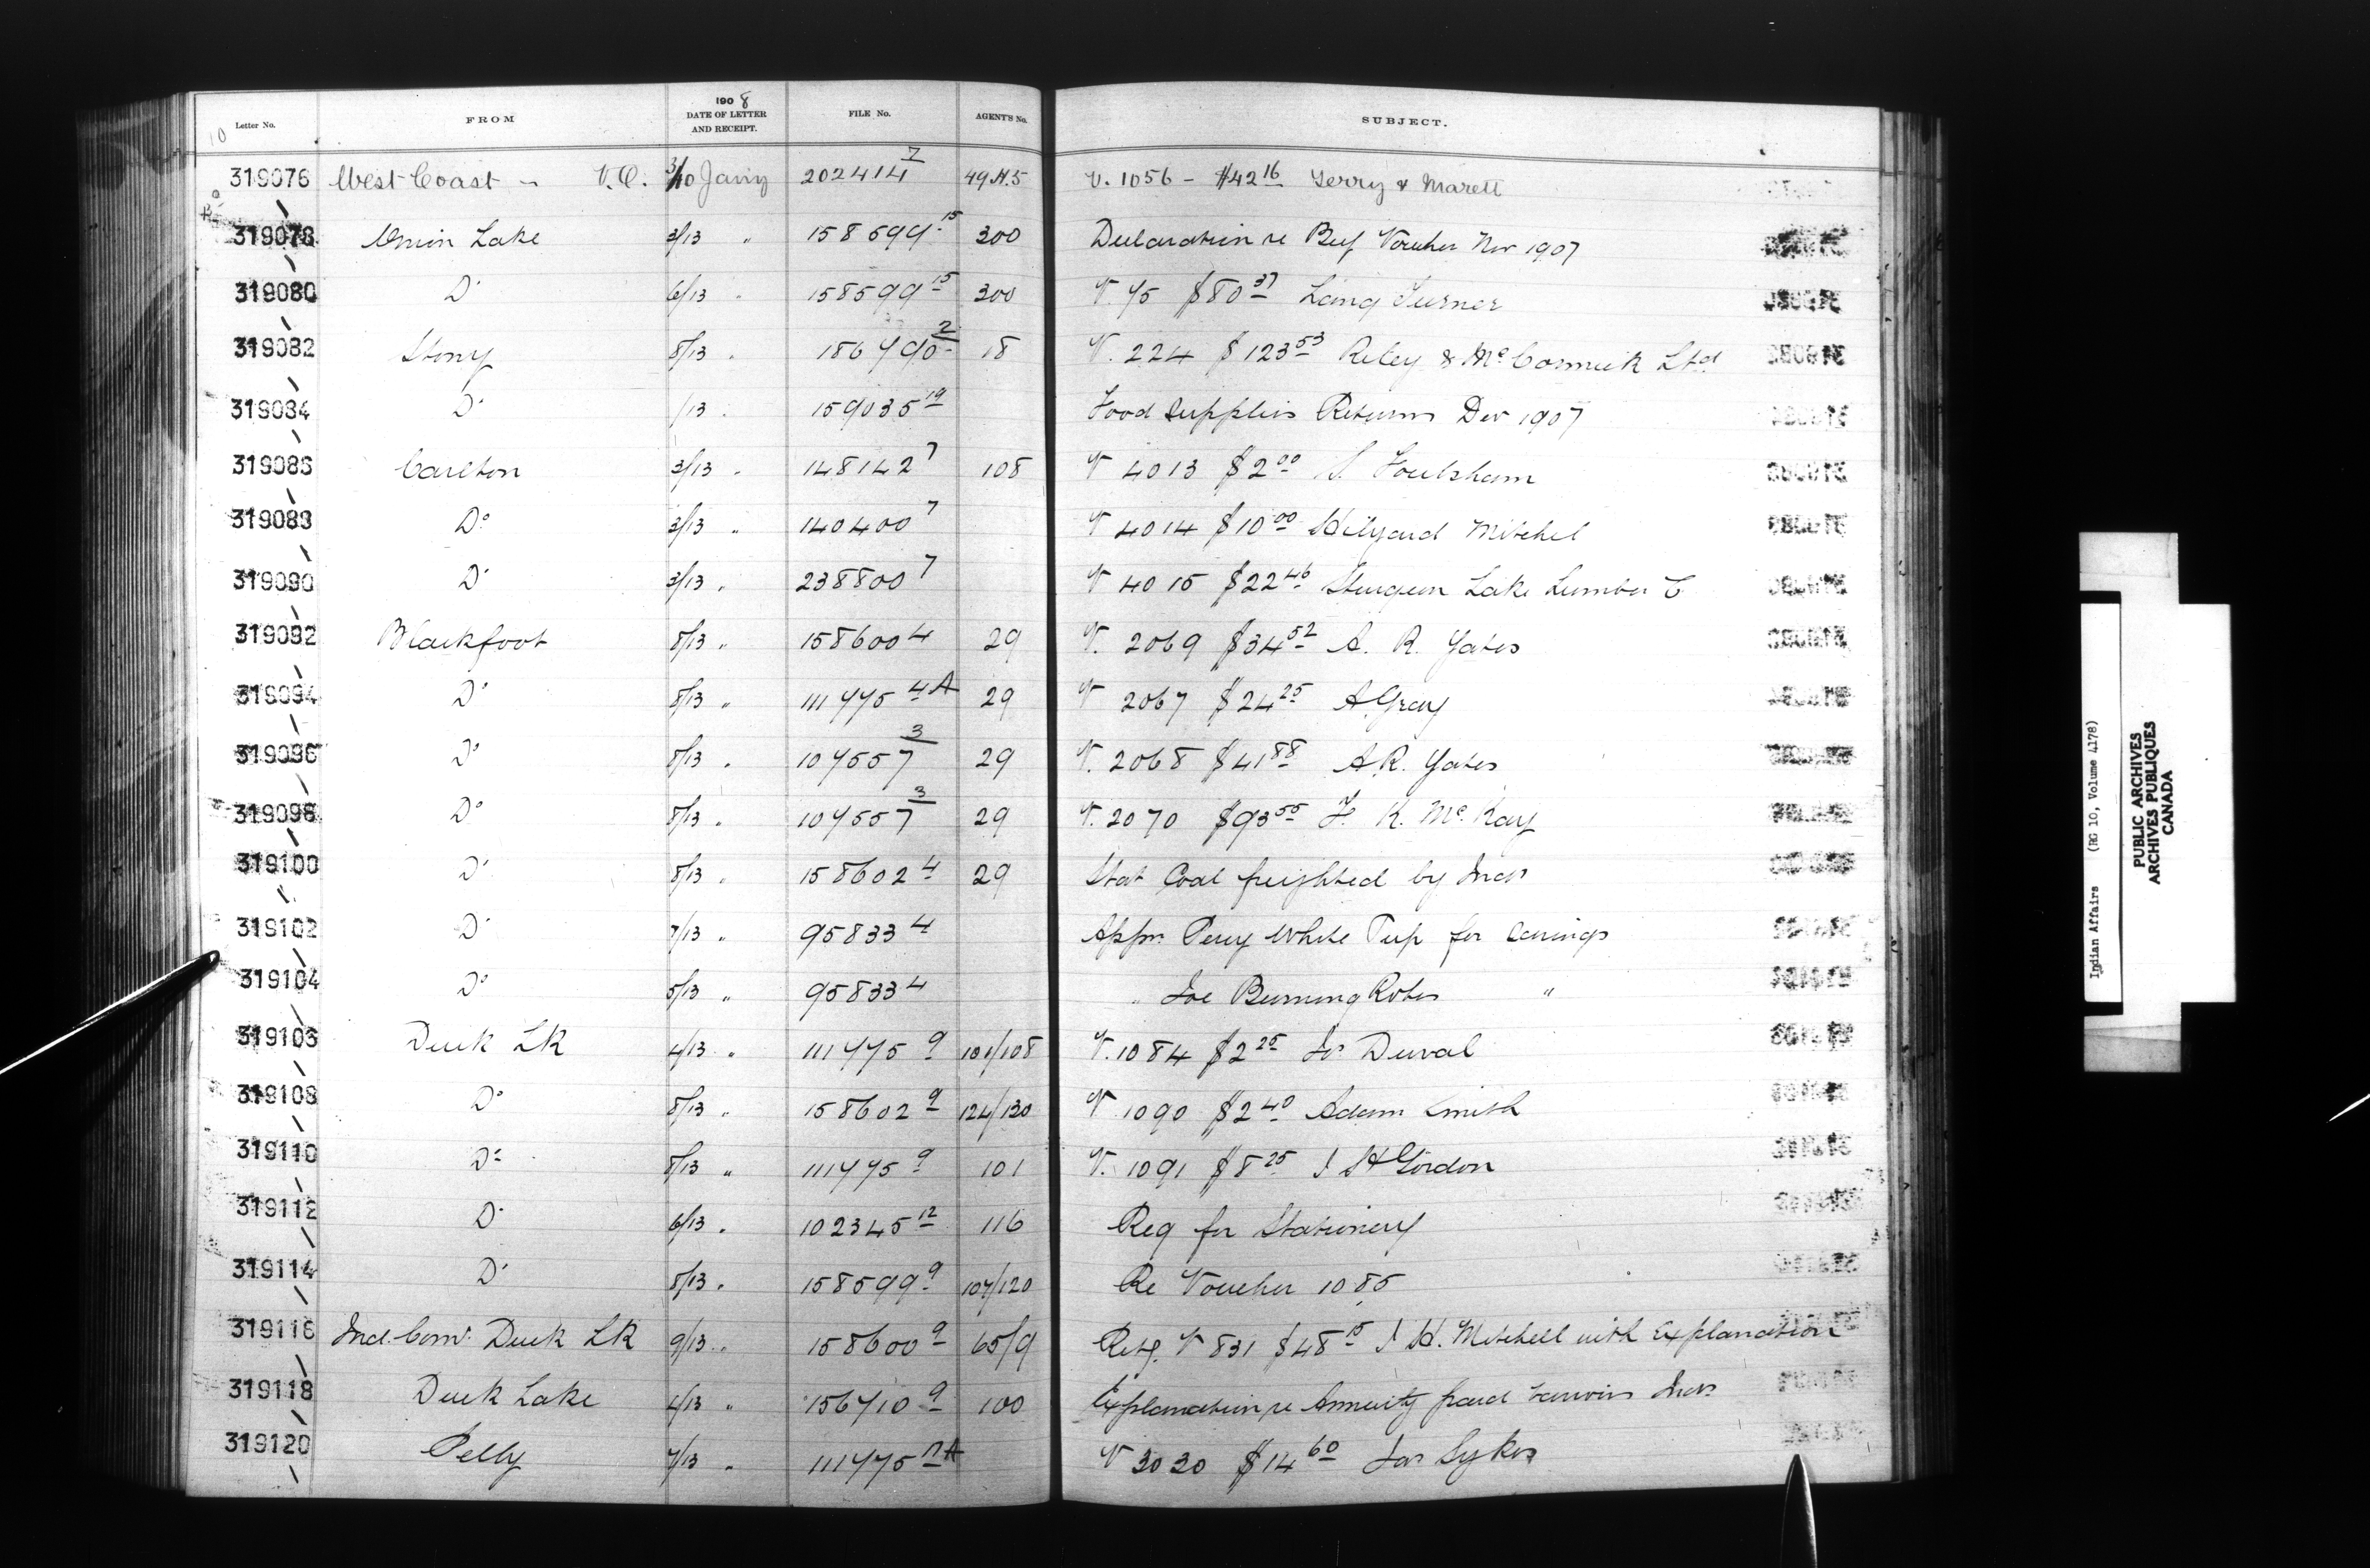 Letter No. FROM 1908 DATE OF LETTER AND RECEIPT. FILE No. AGENT'S No. SUBJECT.
10
319076 West Coast - V.O. 3/10 Jany 202414 7 49 H.5 V. 1056 - $42 16 Terry & Marett
319078 Onion Lake 3/13 " 158599 15 300 Declaration re Beef Voucher Nov 1907
319080 Do 6/13 " 158599 15 300 V. 75 $80 37 Lang Turner
319082 Stony 8/13 " 186790 2 18 V. 224 $123 53 Riley & McCormick Ltd
319084 Do /13 " 159035 19 Food Supplies Returns Dec 1907
319086 Carlton 3/13 " 148142 7 108 V 4013 $2 00 Foulsham
319088 Do 3/13 " 140400 7 V 4014 $10 00 Hilyard Mitchel
319090 Do 3/13 " 238800 7 V 4015 $22 46 Sturgeon Lake Lumber C
319092 Blackfoot 8/13 " 158600 4 29 V. 2069 $34 52 A. R. Yates
319094 Do 8/13 " 111775 4A 29 V 2067 $24 25 A Gray
319096 Do 8/13 " 107557 3 29 V. 2068 $41 88 A.R. Yates
319098 Do 8/13 " 107557 3 29 V. 2070 $93 55 F. K. McKay
319100 Do 8/13 " 158602 4 29 Stat Coal freighted by Inds
319102 Do 7/13 " 95833 4 Appn. Percy White Pup for Earnings
319104 Do 5/13 " 95833 4 " Joe Burning Robes "
319106 Duck LK 4/13 " 111775 9 101/108 V. 1084 $2 25 Duval
319108 Do 8/13 " 158602 9 124/130 V 1090 $2 40 Adam Smith
319110 Do 8/13 " 111775 9 101 V. 1091 $8 25 J H Gordon
319112 Do 6/13 " 102345 12 116 Req for Stationery
319114 Do 8/13 " 158599 9 107/120 Re Voucher 1085
319116 Ind. Comr. Duck LK 9/13 " 158600 9 65/9 Retg. V 831 $48 15 J H. Mitchell with Explanation
319118 Duck Lake 4/13 " 156710 9 100 Explanation re Annuity paid Inds
319120 Pelly 7/13 " 111775 A V 3030 $14 60 Jas Sykes
Indian Affairs (RG 10, Volume 4178)
PUBLIC ARCHIVES
ARCHIVES PUBLIQUES
CANADA